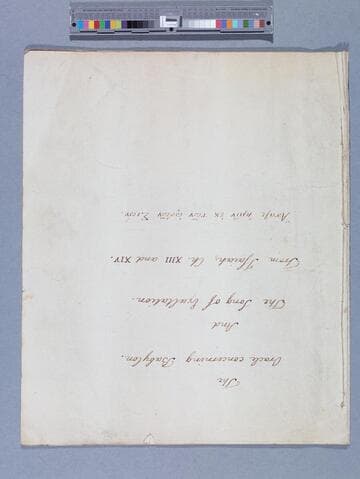 The
Oracle concerning Babylon.
And
The Song of Exultation.
From Isaiah, Ch. XIII and XIV.